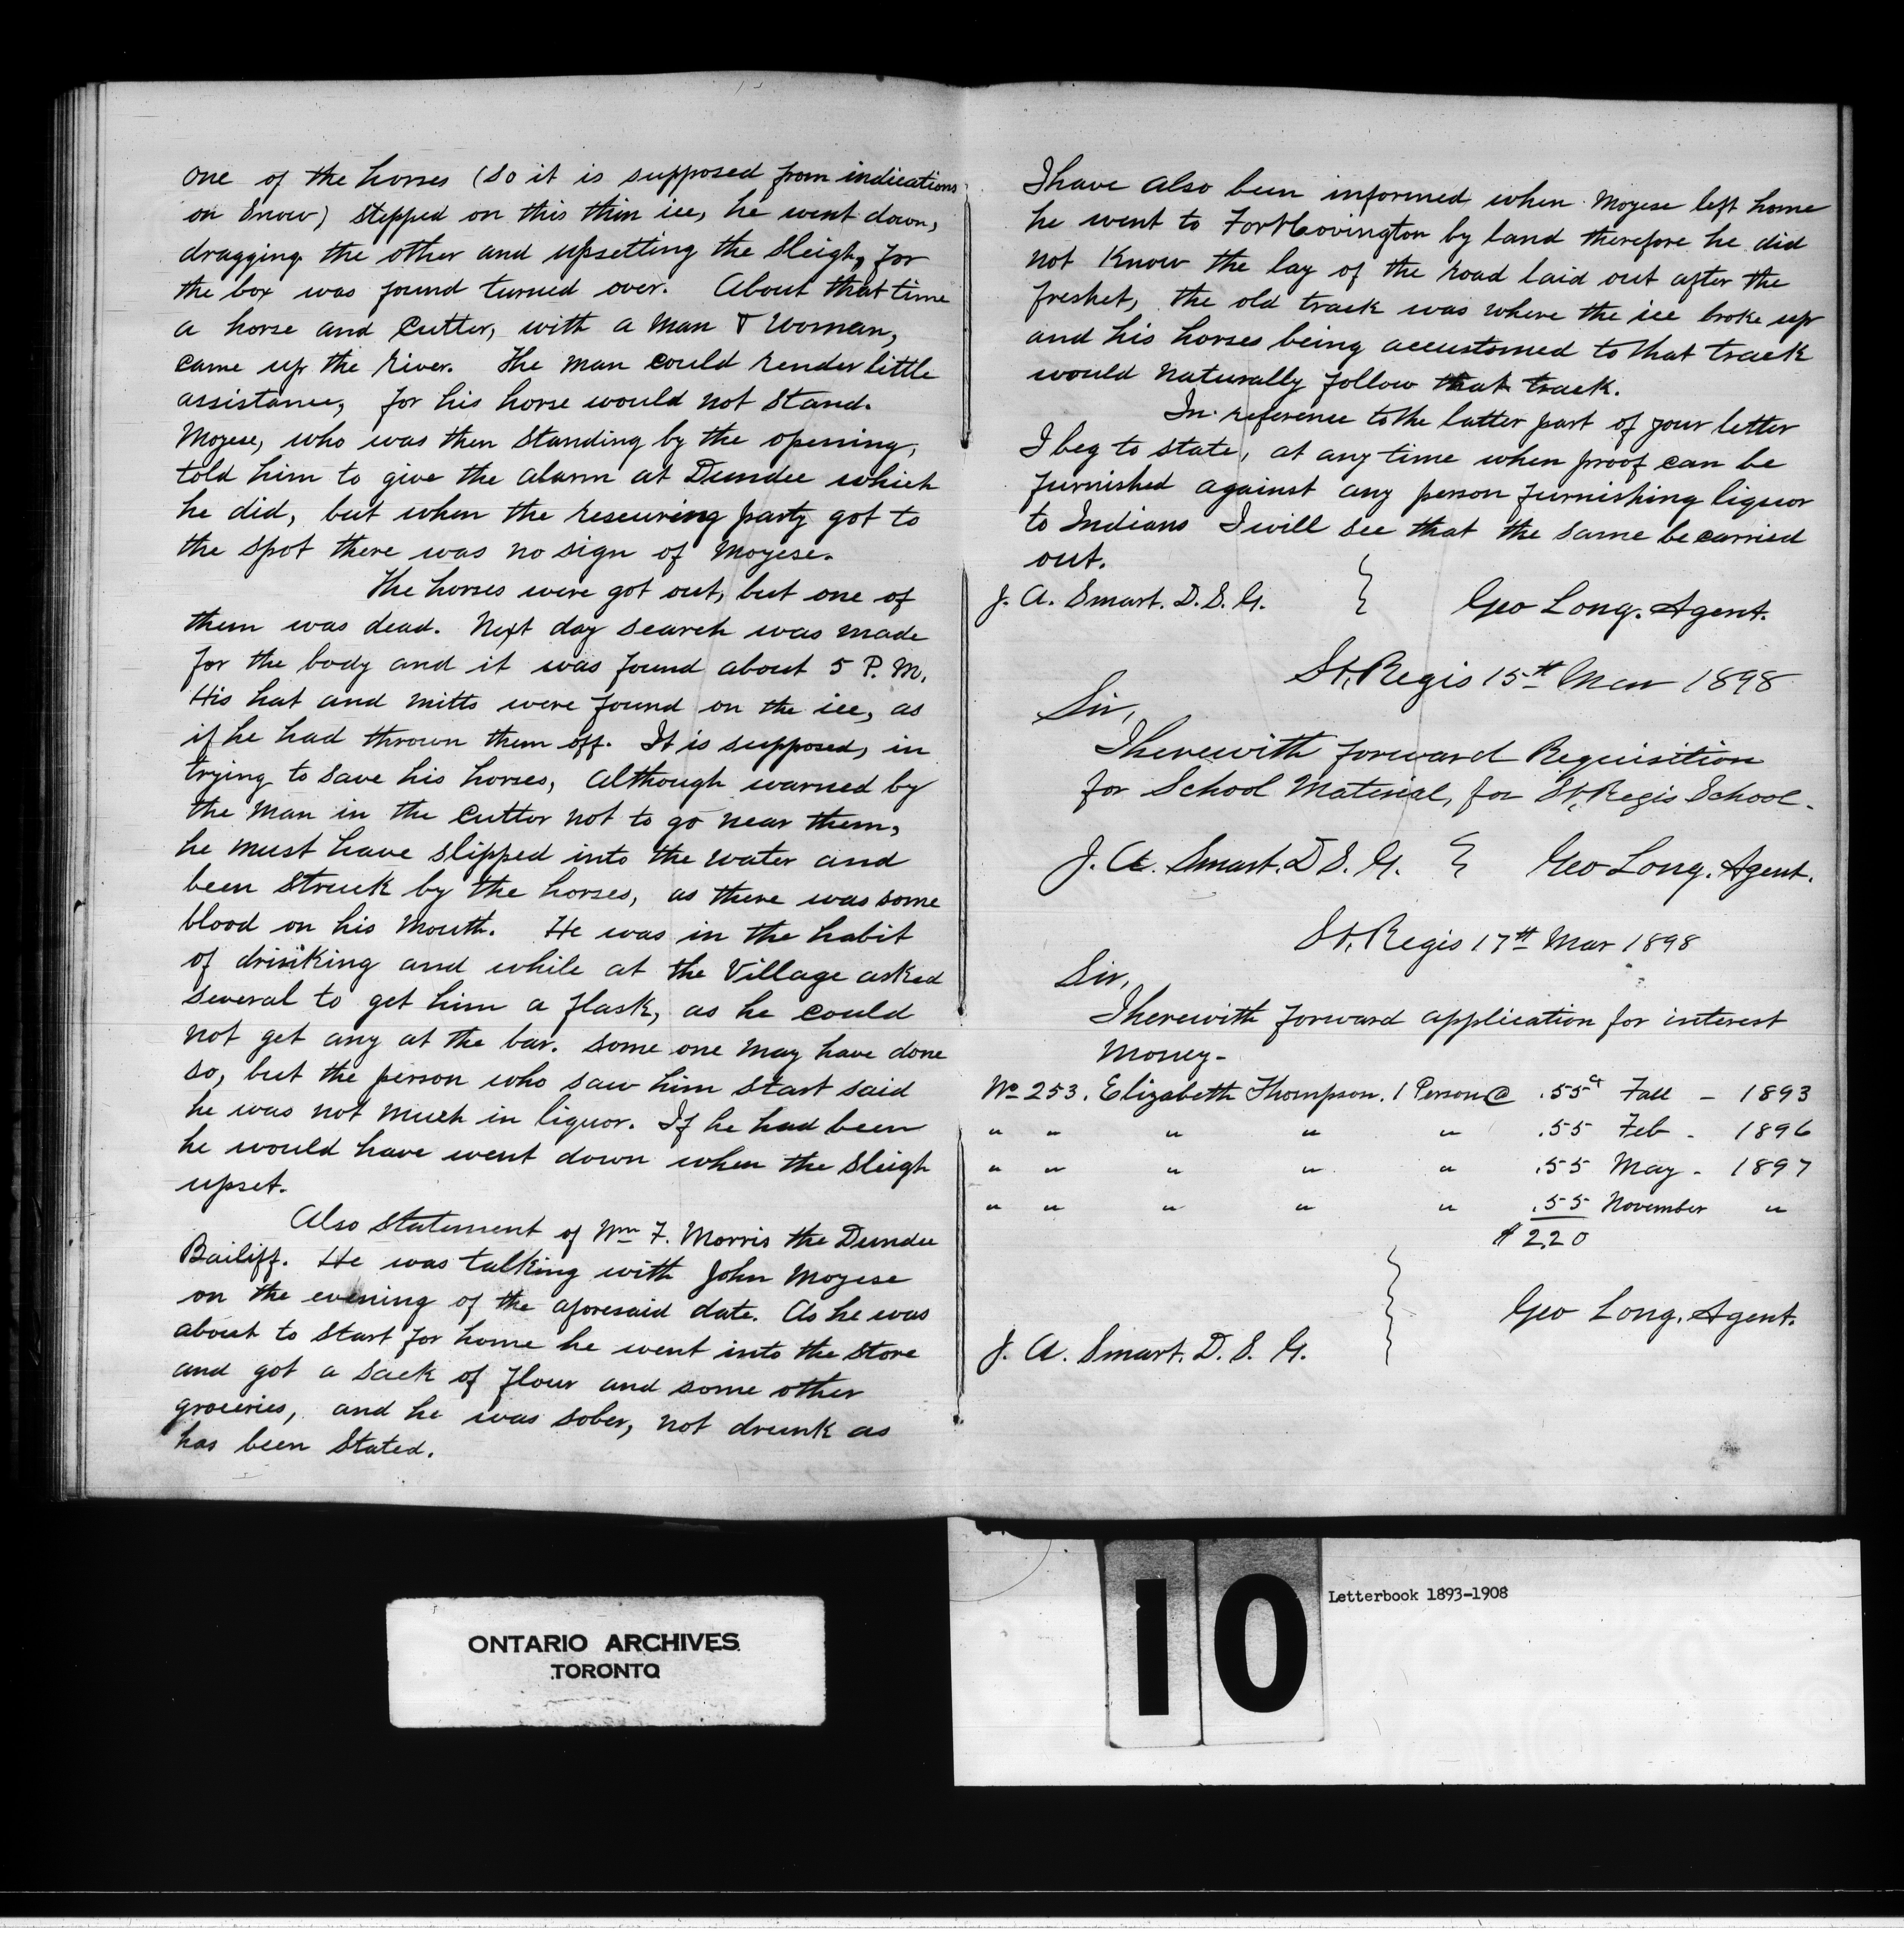 one of the horses (So it is supposed from indications
on Snow) stepped on this thin ice, he went down,
dragging the other and upsetting the sleigh, for
the box was found turned over. About that time
a horse and cutter, with a man & Woman,
came up the river. The man could render little
assistance, for his horse would not stand.
Moyese, who was then standing by the opening,
told him to give the alarm at Dundee which
he did, but when the rescuring party got to
the spot there was no sign of Moyese.
The horses were got out, but one of
them was dead. Next day search was made
for the body and it was found about 5 P.M.
His hat and mitts were found on the ice, as
if he had thrown them off. It is supposed, in
trying to save his horses, Although warned by
the man in the cutter not to go near them,
he must have slipped into the water and
been struck by the horses, as there was some
blood on his Mouth. He was in the habit
of drinking and while at the Village asked
several to get him a flask, as he could
not get any at the bar. some one may have done
so, but the person who saw him start said
he was not much in liquor. If he had been
he would have went down when the sleigh
upset.
Also statement of Wm F. Morris the Dundee
Bailiff. He was talking with John Moyese
on the evening of the aforesaid date. As he was
about to start for home he went into the store
and got a sack of flour and some other
groceries, and he was sober, not drunk as
has been stated.
I have also been informed when Moyese left home
he went to Fort Covington by land therefore he did
not Know the lay of the road laid out after the
freshet, the old track was where the ice broke up
and his horses being accustomed to that track
would naturally follow that track.
In reference to the latter part of your letter
I beg to state, at any time when proof can be
furnished against any person furnishing liquor
to Indians I will see that the same be carried
out.
J. A. Smart. D. S. G. } Geo Long. Agent.
St. Regis 15th Mar 1898
Sir,
I herewith forward Requisition
for School Material, for St. Regis School.
J. A. Smart. D S. G. } Geo Long. Agent.
St. Regis 17th Mar 1898
Sir,
I herewith forward application for interest
Money-
No 253. Elizabeth Thompson. 1 Person @ .55c Fall - 1893
" " " " " .55 Feb - 1896
" " " " " .55 May - 1897
" " " " " .55 November "
$ 2.20
Geo Long. Agent.
J. A. Smart. D. S. G. }
ONTARIO ARCHIVES
TORONTO
10
Letterbook 1893-1908